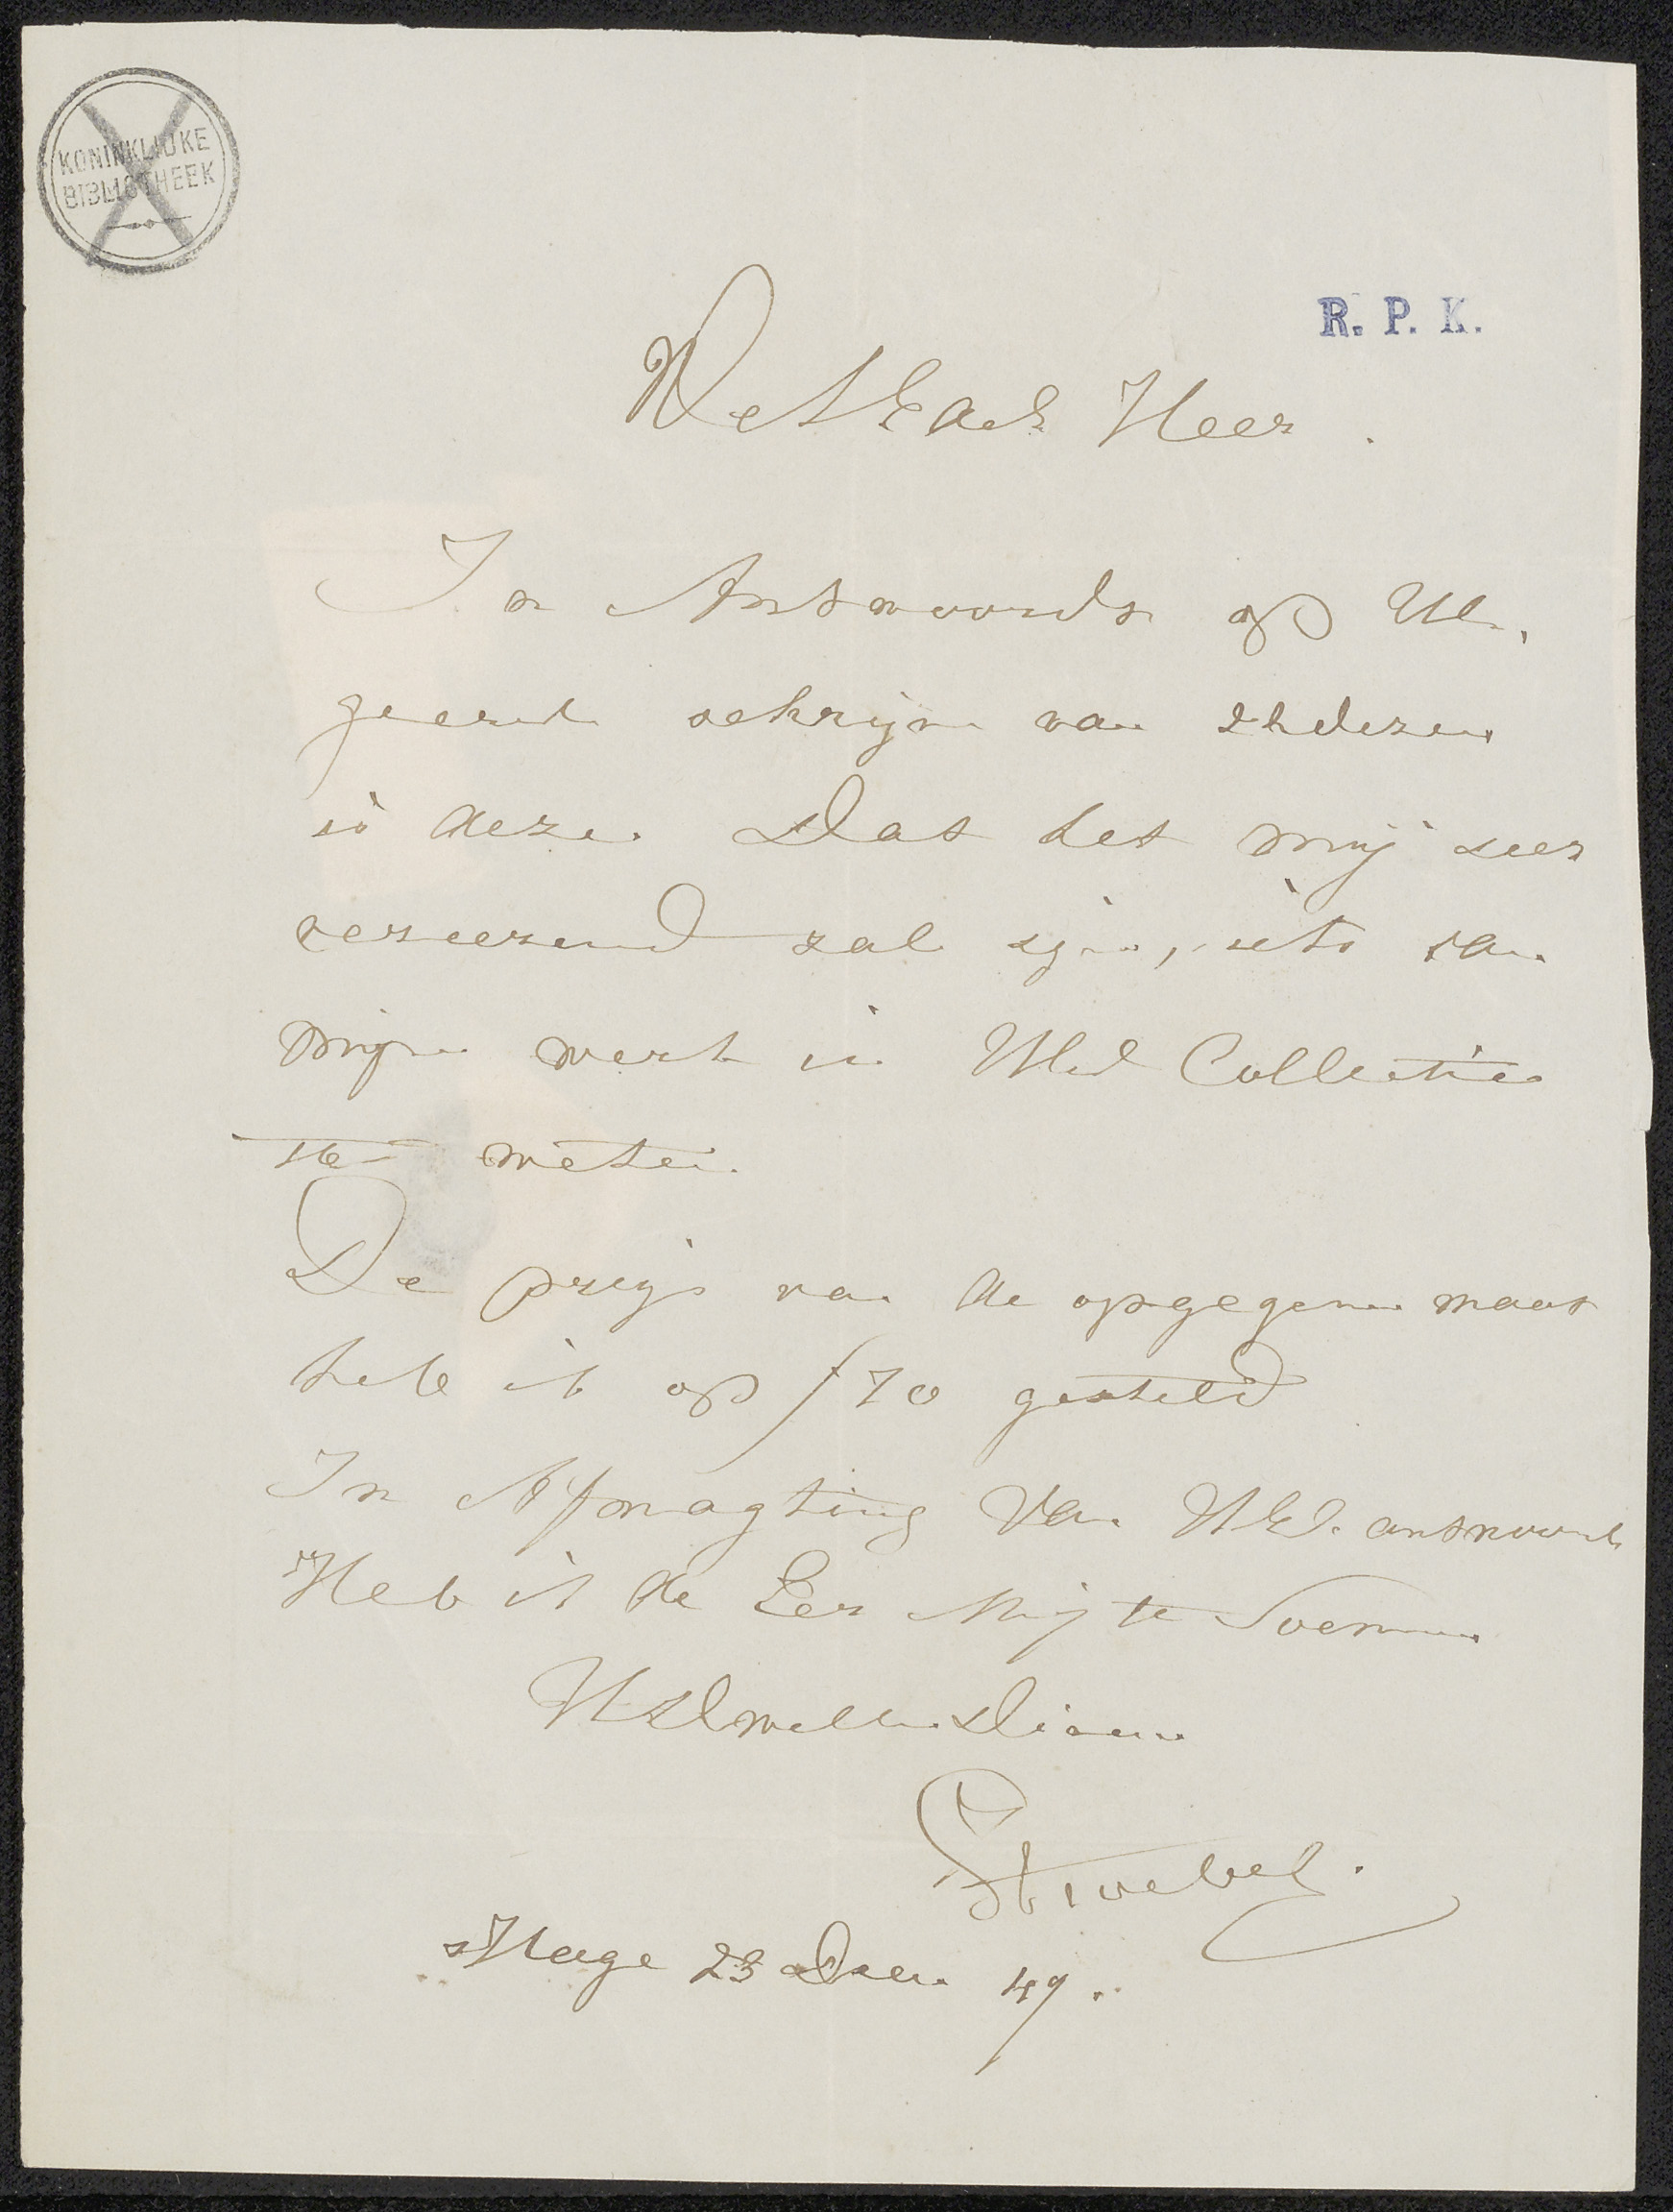 KONINKLIJKE
BIBLIOTHEEK
R. P. K.
WelEdel Heer.
In Antwoord op UE.
geeerd schrijven van dezer
is deze. Dat het mij seer
vereerend zal zijn, iets van
mijn werk in UEd Collectie
te weten.
De prijs van de opgegeven maat
heb ik op f 70 gesteld
In Afwagting Van UEd. antwoord
Heb ik de Eer Mij te Noemen
UEdwelln Diena
Stroebel.
sHage 23 Decem 49.